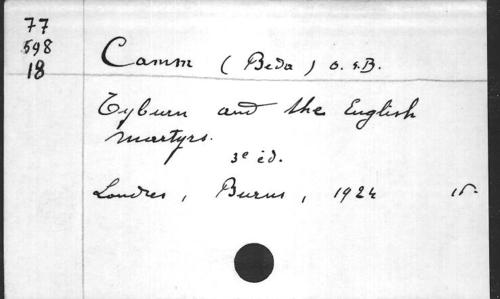 77
598
18
Camm (Beda) O.S.B.
Tyburn and the English
martyrs.
3e éd.
Londres, Burns, 1924